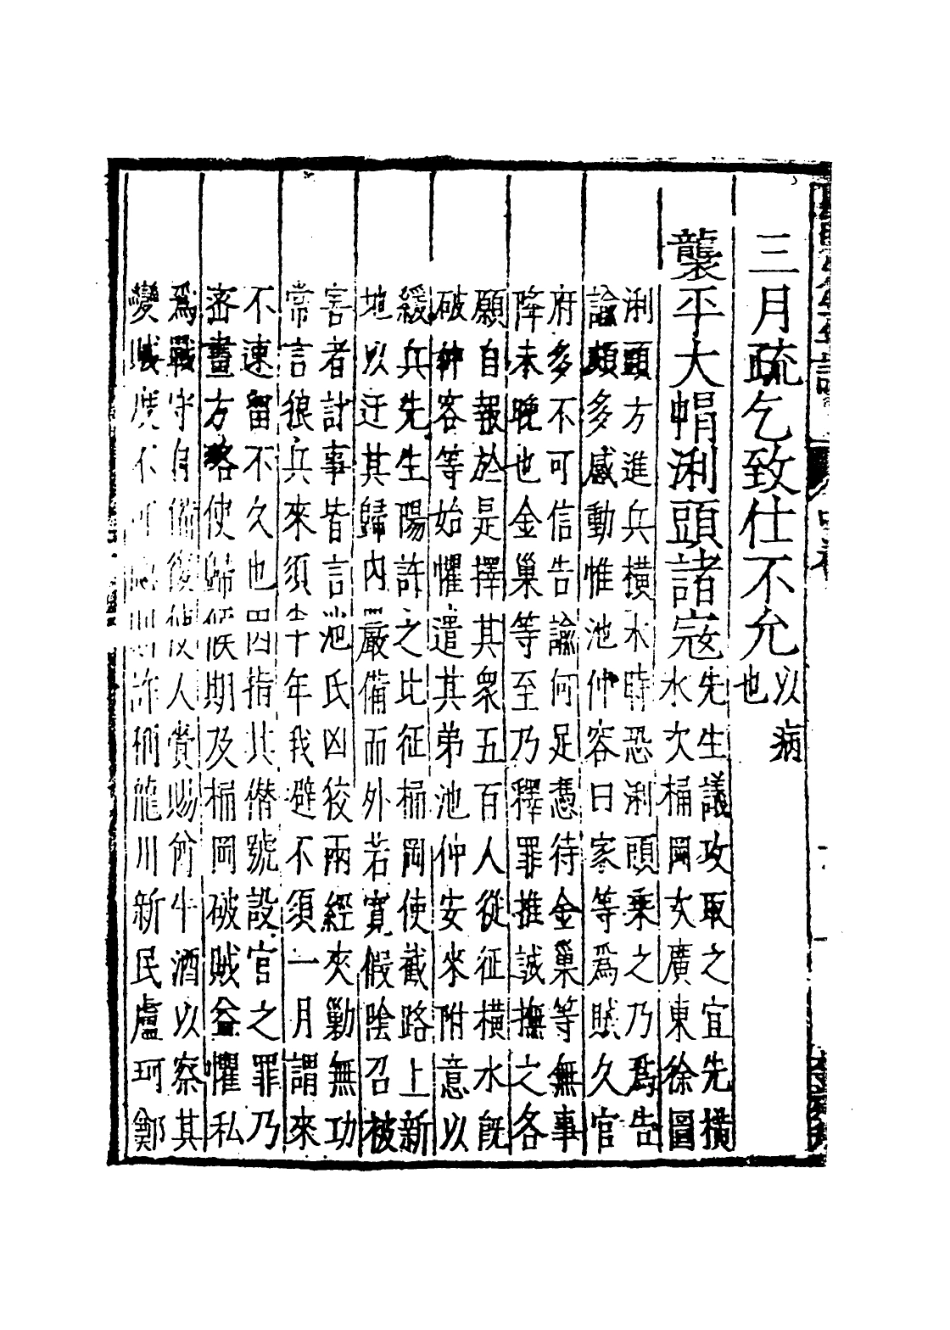 三月疏乞致仕不允以病
也
襲平大帽浰頭諸寇先生議攻取之宜先橫
水次桶岡次廣東徐圖
浰頭方進兵橫水時恐浰頭乘之乃爲告
諭頗多感動惟池仲容曰家等爲賊久官
府多不可信告諭何足憑待金巢等無事
降未晚也金巢等至乃釋罪推誠撫之各
願自報於是擇其衆五百人從征橫水旣
破仲容等始懼遣其弟池仲安來附意以
緩兵先生陽許之比征桶岡使截路上新
地以迂其歸內嚴備而外若寬假陰召被
害者計事皆言池氏凶狡兩經夾勦無功
常言狼兵來須半年我避不須一月謂來
不速留不久也因指其僭號設官之罪乃
密畫方略使歸候期及桶岡破賊益懼私
爲戰守自備復使人賞賜牛酒以察其
變賊度不可詐稱龍川新民盧珂鄭